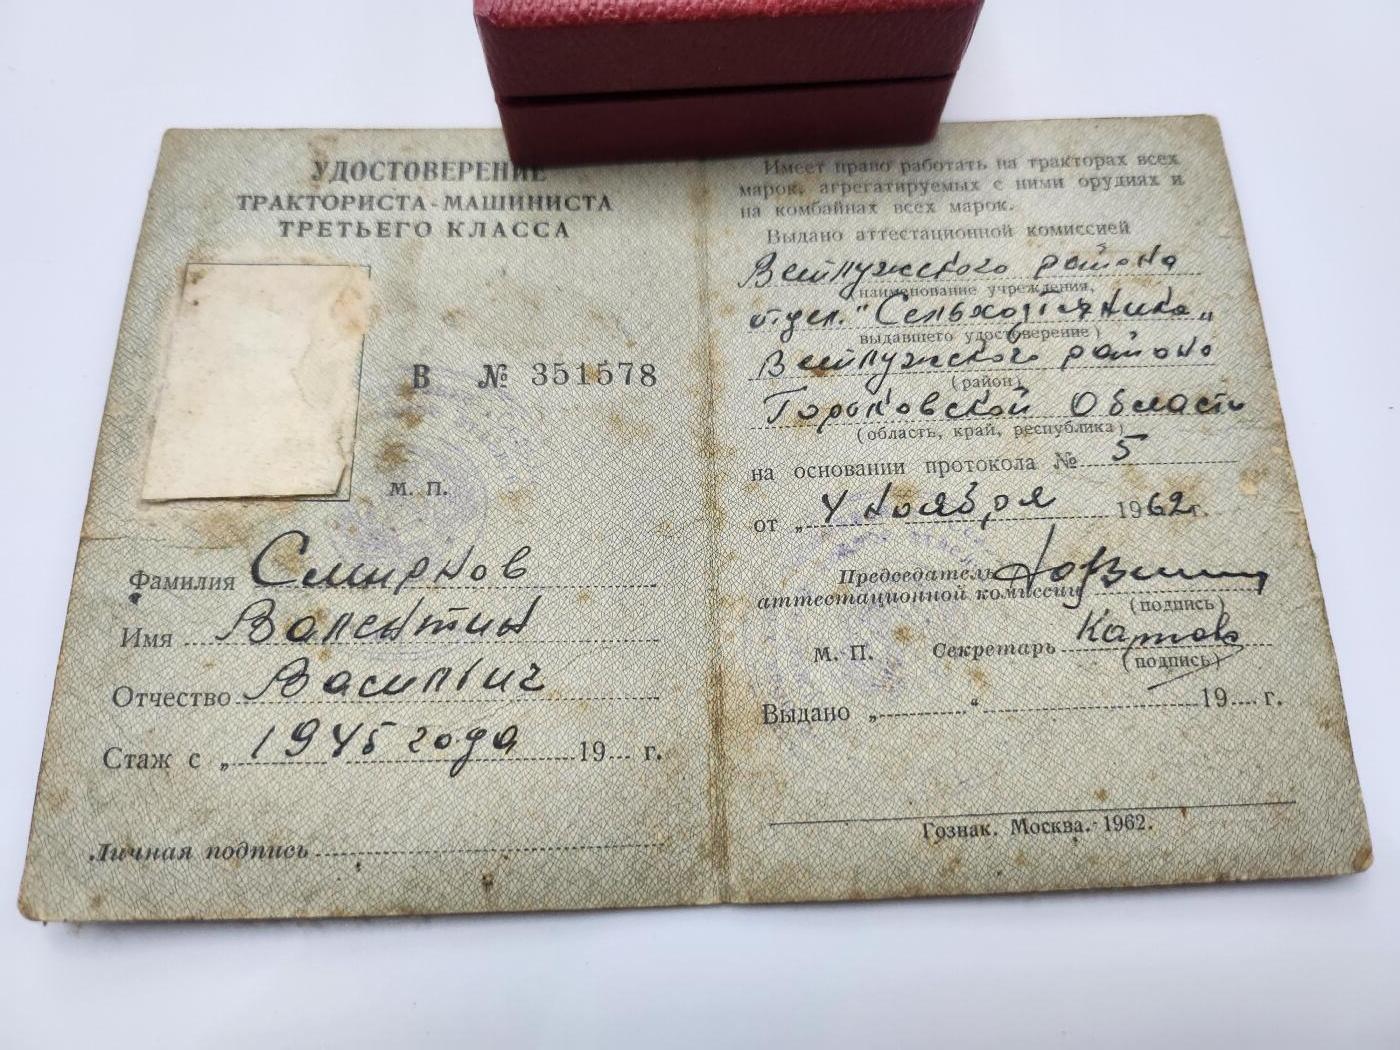 УДОСТОВЕРЕНИЕ
ТРАКТОРИСТА-МАШИНИСТА
ТРЕТЬЕГО КЛАССА
В № 351578
М. П.
Фамилия Смирнов
Имя Валентин
Отчество Васильич
Стаж с „ 1945 года 19 г.
Личная подпись
Имеет право работать на тракторах всех
марок, агрегатируемых с ними орудиях и
на комбайнах всех марок.
Выдано аттестационной комиссией
Ветлужского района
(наименование учреждения,
отдел. "Сельхозтехника"
выдавшего удостоверение)
Ветлужского района
(район)
Горьковской Области
(область, край, республика)
на основании протокола № 5
от „ 4 ноября 1962 г.
Председатель
аттестационной комиссии
(подпись)
М. П. Секретарь
(подпись)
Выдано „ “ 19 г.
Гознак. Москва. 1962.